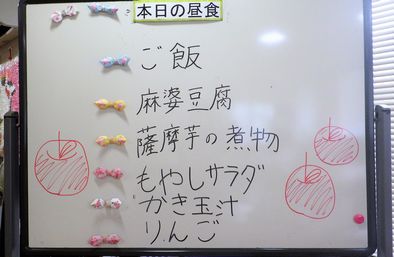 本日の昼食
ご飯
麻婆豆腐
薩摩芋の煮物
もやしサラダ
かき玉汁
りんご